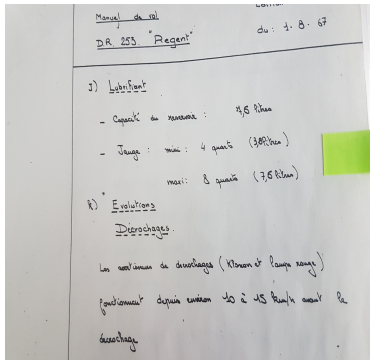 Manuel de vol
DR 253 "Regent" du : 1-8-67
J) Lubrifiant
- Capacité du reservoir : 7,5 litres
- Jauge : mini : 4 quarts (3,8 litres)
maxi : 8 quarts (7,5 litres)
K) Evolutions
Décrochages.
Les avertisseurs de décrochages (Klaxon et lampe rouge)
fonctionnent depuis environ 10 à 15 km/h avant le
décrochage